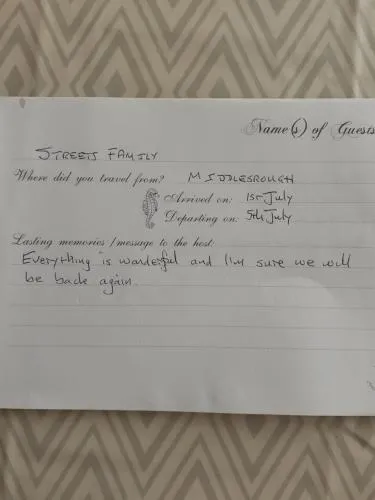 Name(s) of Guests
STREETS FAMILY
Where did you travel from? MIDDLESBROUGH
Arrived on: 1st July
Departing on: 5th July
Lasting memories / message to the host:
Everything is wonderful and I'm sure we will
be back again.